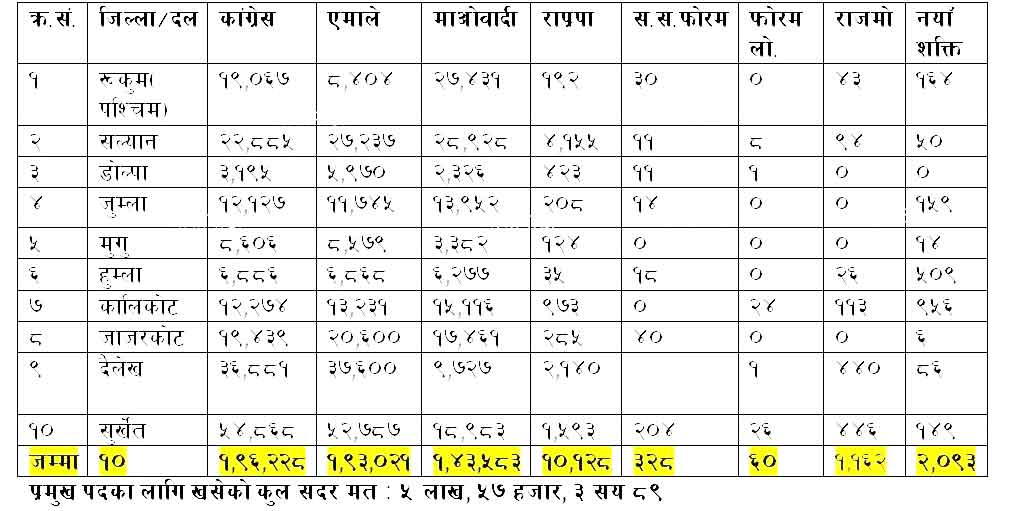 क्र.सं. जिल्ला/दल कांग्रेस एमाले माओवादी राप्रपा स.स.फोरम फोरम लो. राजमो नयाँ शक्ति
१ रूकुम( पश्चिम) १९,०६७ ८,४०४ २७,४३१ १९२ ३० ० ४३ १६४
२ सल्यान २२,८८५ २७,२३७ २८,९२८ ४,१५५ ११ ८ ९४ ५०
३ डोल्पा ३,१९५ ५,९७० २,३२६ ४२३ ११ १ ० ०
४ जुम्ला १२,१२७ ११,७४५ १३,९५२ २०८ १४ ० ० १५९
५ मुगु ८,६०६ ८,५७९ ३,३८२ १२४ ० ० ० १४
६ हुम्ला ६,८८६ ६,८६८ ६,२७७ ३५ १८ ० २६ ५०९
७ कालिकोट १२,२७४ १३,२३१ १५,११६ ९७३ ० २४ ११३ ९५६
८ जाजरकोट १९,४३९ २०,६०० १७,४६१ २८५ ४० ० ० ६
९ दैलेख ३६,८८१ ३७,६०० ९,७२७ २,१४० १ ४४० ८६
१० सुर्खेत ५४,८६८ ५२,७८७ १८,९८३ १,५९३ २०४ २६ ४४६ १४९
जम्मा १० १,९६,२२८ १,९३,०२१ १,४३,५८३ १०,१२८ ३२८ ६० १,१६२ २,०९३
प्रमुख पदका लागि खसेको कुल सदर मत : ५ लाख, ५७ हजार, ३ सय ८९